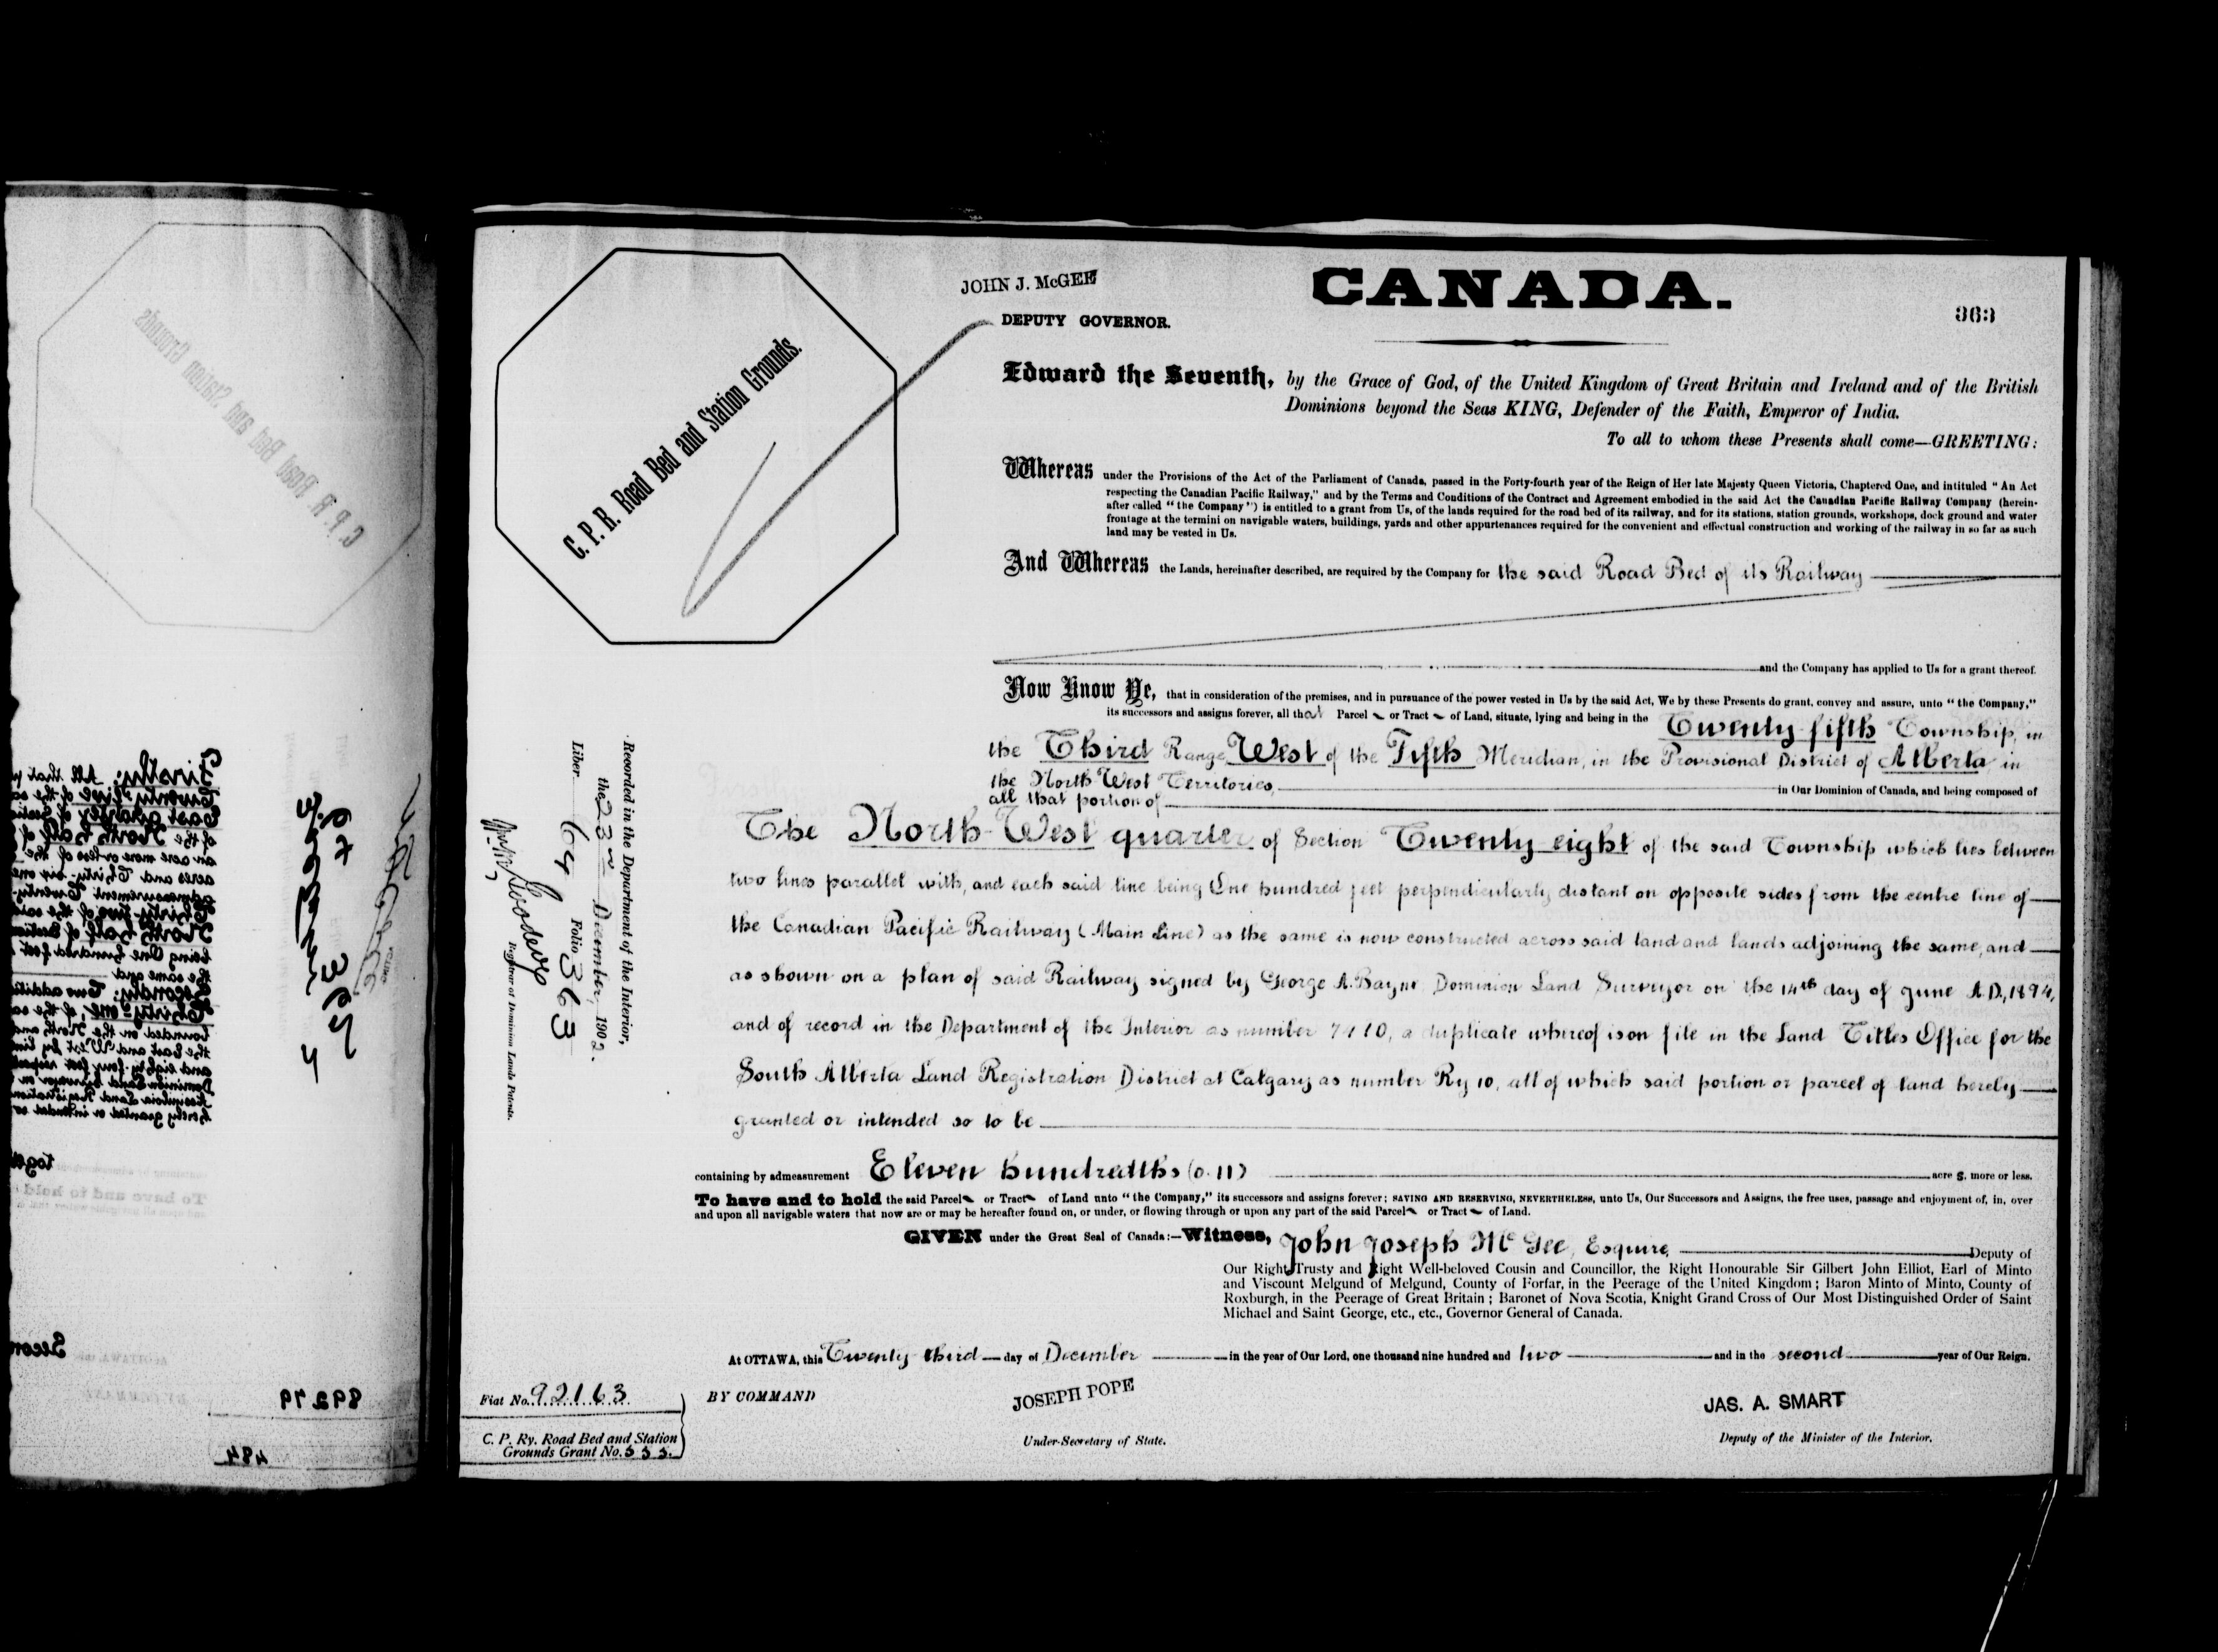 JOHN J. McGEE
DEPUTY GOVERNOR.
CANADA.
363
C. P. R. Road Bed and Station Grounds.
Edward the Seventh, by the Grace of God, of the United Kingdom of Great Britain and Ireland and of the British
Dominions beyond the Seas KING, Defender of the Faith, Emperor of India.
To all to whom these Presents shall come—GREETING:
Whereas under the Provisions of the Act of the Parliament of Canada, passed in the Forty-fourth year of the Reign of Her late Majesty Queen Victoria, Chaptered One, and intituled "An Act
respecting the Canadian Pacific Railway," and by the Terms and Conditions of the Contract and Agreement embodied in the said Act the Canadian Pacific Railway Company (herein-
after called "the Company") is entitled to a grant from Us, of the lands required for the road bed of its railway, and for its stations, station grounds, workshops, dock ground and water
frontage at the termini on navigable waters, buildings, yards and other appurtenances required for the convenient and effectual construction and working of the railway in so far as such
land may be vested in Us.
And Whereas the Lands, hereinafter described, are required by the Company for the said Road Bed of its Railway
and the Company has applied to Us for a grant thereof.
Now Know Ye, that in consideration of the premises, and in pursuance of the power vested in Us by the said Act, We by these Presents do grant, convey and assure, unto "the Company,"
its successors and assigns forever, all that Parcel or Tract of Land, situate, lying and being in the Twenty-fifth Township, in
the Third Range West of the Fifth Meridian, in the Provisional District of Alberta in
the North West Territories, in Our Dominion of Canada, and being composed of
all that portion of
The North-West quarter of Section Twenty eight of the said Township which lies between
two lines parallel with, and each said line being One hundred feet perpindicularly distant on opposite sides from the centre line of
the Canadian Pacific Railway (Main Line) as the same is now constructed across said land and lands adjoining the same, and
as shown on a plan of said Railway signed by George A. Bayne, Dominion Land Surveyor on the 14th day of June A.D., 1894,
and of record in the Department of the Interior as number 7410, a duplicate whereof is on file in the Land Titles Office for the
South Alberta Land Registration District at Calgary as number Ry 10, all of which said portion or parcel of land hereby
granted or intended so to be
containing by admeasurement Eleven hundredths (0.11) acre s, more or less.
To have and to hold the said Parcel or Tract of Land unto "the Company," its successors and assigns forever; SAVING AND RESERVING, NEVERTHELESS, unto Us, Our Successors and Assigns, the free uses, passage and enjoyment of, in, over
and upon all navigable waters that now are or may be hereafter found on, or under, or flowing through or upon any part of the said Parcel or Tract of Land.
GIVEN under the Great Seal of Canada:—Witness, John Joseph McGee, Esquire, Deputy of
Our Right Trusty and Right Well-beloved Cousin and Councillor, the Right Honourable Sir Gilbert John Elliot, Earl of Minto
and Viscount Melgund of Melgund, County of Forfar, in the Peerage of the United Kingdom; Baron Minto of Minto, County of
Roxburgh, in the Peerage of Great Britain; Baronet of Nova Scotia, Knight Grand Cross of Our Most Distinguished Order of Saint
Michael and Saint George, etc., etc., Governor General of Canada.
At OTTAWA, this Twenty third day of December in the year of Our Lord, one thousand nine hundred and two and in the second year of Our Reign.
BY COMMAND
JOSEPH POPE
Under-Secretary of State.
JAS. A. SMART
Deputy of the Minister of the Interior.
Fiat No. 92163
C. P. Ry. Road Bed and Station
Grounds Grant No. 555.
Recorded in the Department of the Interior,
the 23rd December, 1902.
Liber 64 Folio 363
Registrar of Dominion Lands Patents.
89279
484